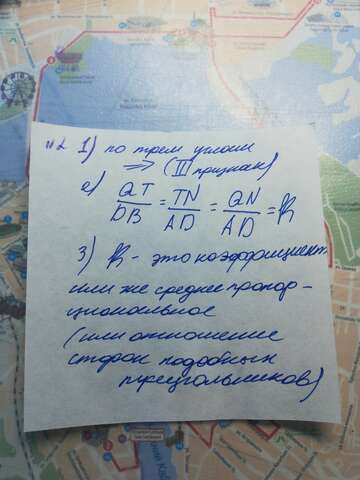 №2 1) по трем углам
⇒ (III признак)
2) QT/DB = TN/AD = QN/AD = k
3) k - это коэффициент
или же среднее пропор-
циональное
(или отношение
сторон подобных
треугольников)